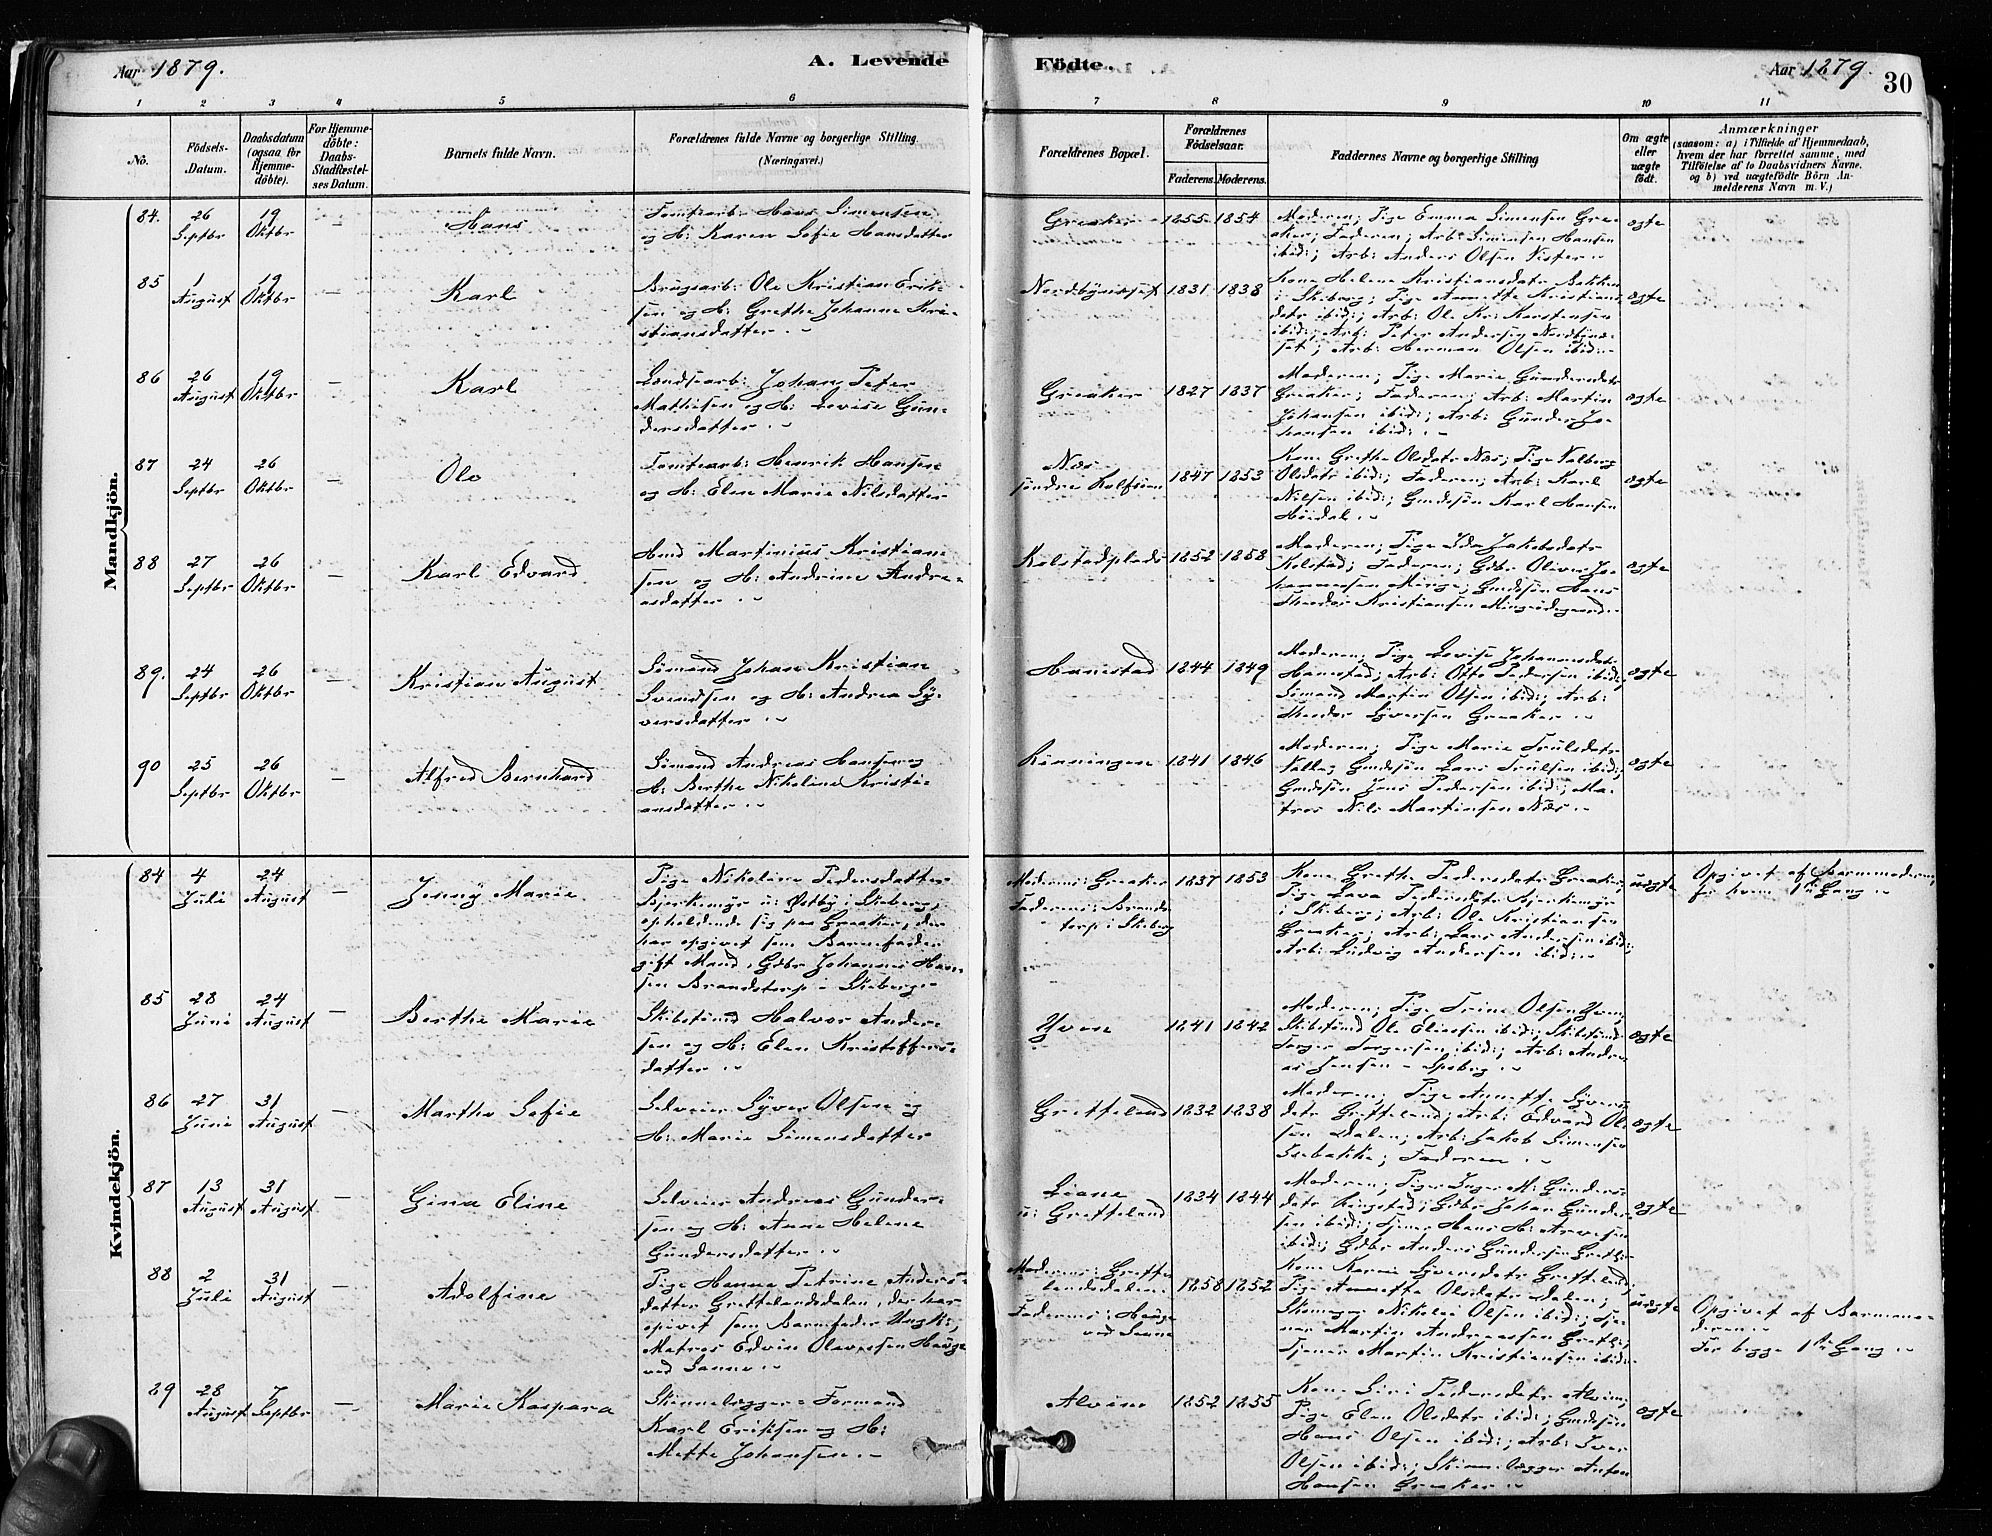 Aar 1879.
A. Levende
Födte.
Aar 1879.
30
1 2 3 4 5 6 7 8 9 10 11
No.
Födsels-Datum.
Daabsdatum (ogsaa for Hjemme-döbte).
For Hjemme-döbte: Daabs-Stadfæstel-ses Datum.
Barnets fulde Navn.
Forældrenes fulde Navne og borgerlige Stilling. (Næringsvei.)
Forældrenes Bopæl.
Forældrenes Födselsaar.
Faderens. Moderens.
Faddernes Navne og borgerlige Stilling
Om ægte eller uægte födt.
Anmærkninger
(saasom: a) i Tilfælde af Hjemmedaab,
hvem der har forrettet samme, med
Tilföielse af to Daabsvidners Navne.
og b) ved uægtefödte Börn An-
melderens Navn m. V.)
Mandkjön.
84. 26 Septbr 19 Oktbr — Hans
Tomtearb: Hans Simensen
og H: Karen Sofie Hansdatter
Greaker 1855 1854
Moderen; Pige Emma Simensen Gre-
aker; Faderen; Arb: Simensen Hansen
ibid; Arb: Anders Olsen Vister
ægte
85 1 August 19 Oktbr — Karl
Brugsarb: Ole Kristian Erik-
sen og H: Grethe Johanne Kri-
stiansdatter
1831 1838
Kone Helene Kristiansdatr Bakken
i Skiberg; Pige Annette Kristians
datr ibid; Arb: Ole Kr: Karstensen
ibid; Arb: Peter Andersen
Arb: Herman Olsen ibid
ægte
86 26 August 19 Oktbr — Karl
Landsearb: Johan Peter
Mathisen og H: Lovise Gun-
dersdatter
Greaker 1827 1837
Moderen; Pige Marie Gundersdatr
Greaker; Faderen; Arb: Martin
Johansen ibid; Arb: Gunder Jo-
hansen ibid:
ægte
87 24 Septbr 26 Oktbr — Ole
Tomtearb: Henrik Hansen
og H: Elen Marie Nilsdatter
Næs
søndre
1847 1853
Kone Grethe Olsdatr Næs; Pige Valborg
Olsdatr ibid; Faderen; Arb: Karl
Nilsen ibid; Gmdssøn Karl Hansen
Høidal
ægte
88 27 Septbr 26 Oktbr — Karl Edvard
Hmd Martinius Kristian-
sen og H: Andrine Andre-
asdatter
Kolstadplads 1852 1858
Moderen; Pige Ida Jakobsdatr
Kolstad; Faderen; Gdbr Oliver Jo-
hannessen Minge; Gmdssøn Hans
Theodor Kristiansen
ægte
89. 24 Septbr 26 Oktbr — Kristian August
Sömand Johan Kristian
Svendsen og H: Andrea Sy-
versdatter
Hanestad 1844 1849
Moderen; Pige Lovise Johannesdatr
Hanestad; Arb: Otto Pedersen ibid;
Sömand Martin Olsen ibid; Arb:
Theodor Syversen Greaker
ægte
90 25 Septbr 26 Oktbr — Alfred Bernhard
Sömand Andreas Hansen og
H: Berthe Nikoline Kristi-
ansdatter
Rönningen 1841 1846
Moderen; Pige Marie Trulsdatr
Valle; Gmdssøn Lars Trulsen ibid;
Gmdssøn Jens Pedersen ibid; Ma-
tros Nils Martinsen Næs
ægte
Kvindekjön.
84 4 Juli 24 August — Jenny Marie
Pige Nikoline Pedersdatter
Bjerkemyr u: Østby i Skiberg,
opholdende sig paa Greaker, der
har opgivet som Barnefader
gift Mand, Gdbr Johannes Han-
sen Brandstorp i Skiberg
Moderens: Greaker
Faderens: Brands-
torp i Skiberg
1837 1853
Kone Grethe Pedersdatr Greaker;
Pige Lava Pedersdatr Bjerkemyr
i Skiberg; Arb: Ole Kristiansen
Greaker; Arb: Lars Andersen ibid;
Arb: Ludvig Andersen ibid:
uægte
Opgivet af Barnemoderen,
for hvem 1ste Gang
85 28 Juni 24 August — Berthe Marie
Skibstmd Halvor Ander-
sen og H: Elen Kristoffers-
datter
Yven 1841 1842
Moderen; Pige Trine Olsen Yven;
Skibstmd Ole Eliassen ibid; Skibstmd
Torger Torgersen ibid; Arb: Andre-
as Jensen
ægte
86 27 Juni 31 August — Marthe Sofie
Selveier Syver Olsen og
H: Marie Simensdatter
Gretteland 1832 1838
Moderen; Pige Annette Syvers-
datr Gretteland; Arb: Edvard Ol-
sen Dalen; Arb: Jakob Simensen
Isebakke; Faderen
ægte
87 13 August 31 August — Gina Eline
Selveier Andreas Gunder-
sen og H: Anne Helene
Gundersdatter
Liane
u: Gretteland
1834 1844
Moderen; Pige Inger M: Gunders-
datr Ringstad; Gdbr Johan Gunder-
sen ibid; Tjener Hans H: Arvesen
ibid; Gdbr Anders Gundersen
ægte
88 2 Juli 31 August — Adolfine
Pige Hanna Petrine Anders-
datter Grettelandsdalen, der har
opgivet som Barnefader Ungk:,
Matros Edvin Olavessen Hauge
ved Sanne
Moderens: Grette-
landsdalen
Faderens: Hauge
ved Sanne
1858 1852
Kone Karen Syversdatr Gretteland;
Pige Annette Olsdatr Dalen;
Skomager Nikolai Olsen ibid; Tje-
ner Martin Andreassen
Tjener Martin Kristiansen ibid
uægte
Opgivet af Barnemo-
deren
For begge 1ste Gang
89 28 August 7 Septbr — Marie Kaspara
Skinnelægger-Formand
Karl Eriksen og H:
Mette Johansen
Alvim 1852 1855
Kone Siri Pedersdatr Alvim;
Pige Elen Olsdatr ibid; Gmdssøn
Hans Olsen ibid; Arb: Iver
Olsen ibid; Skinnelægger Anton
Hansen Greaker
ægte